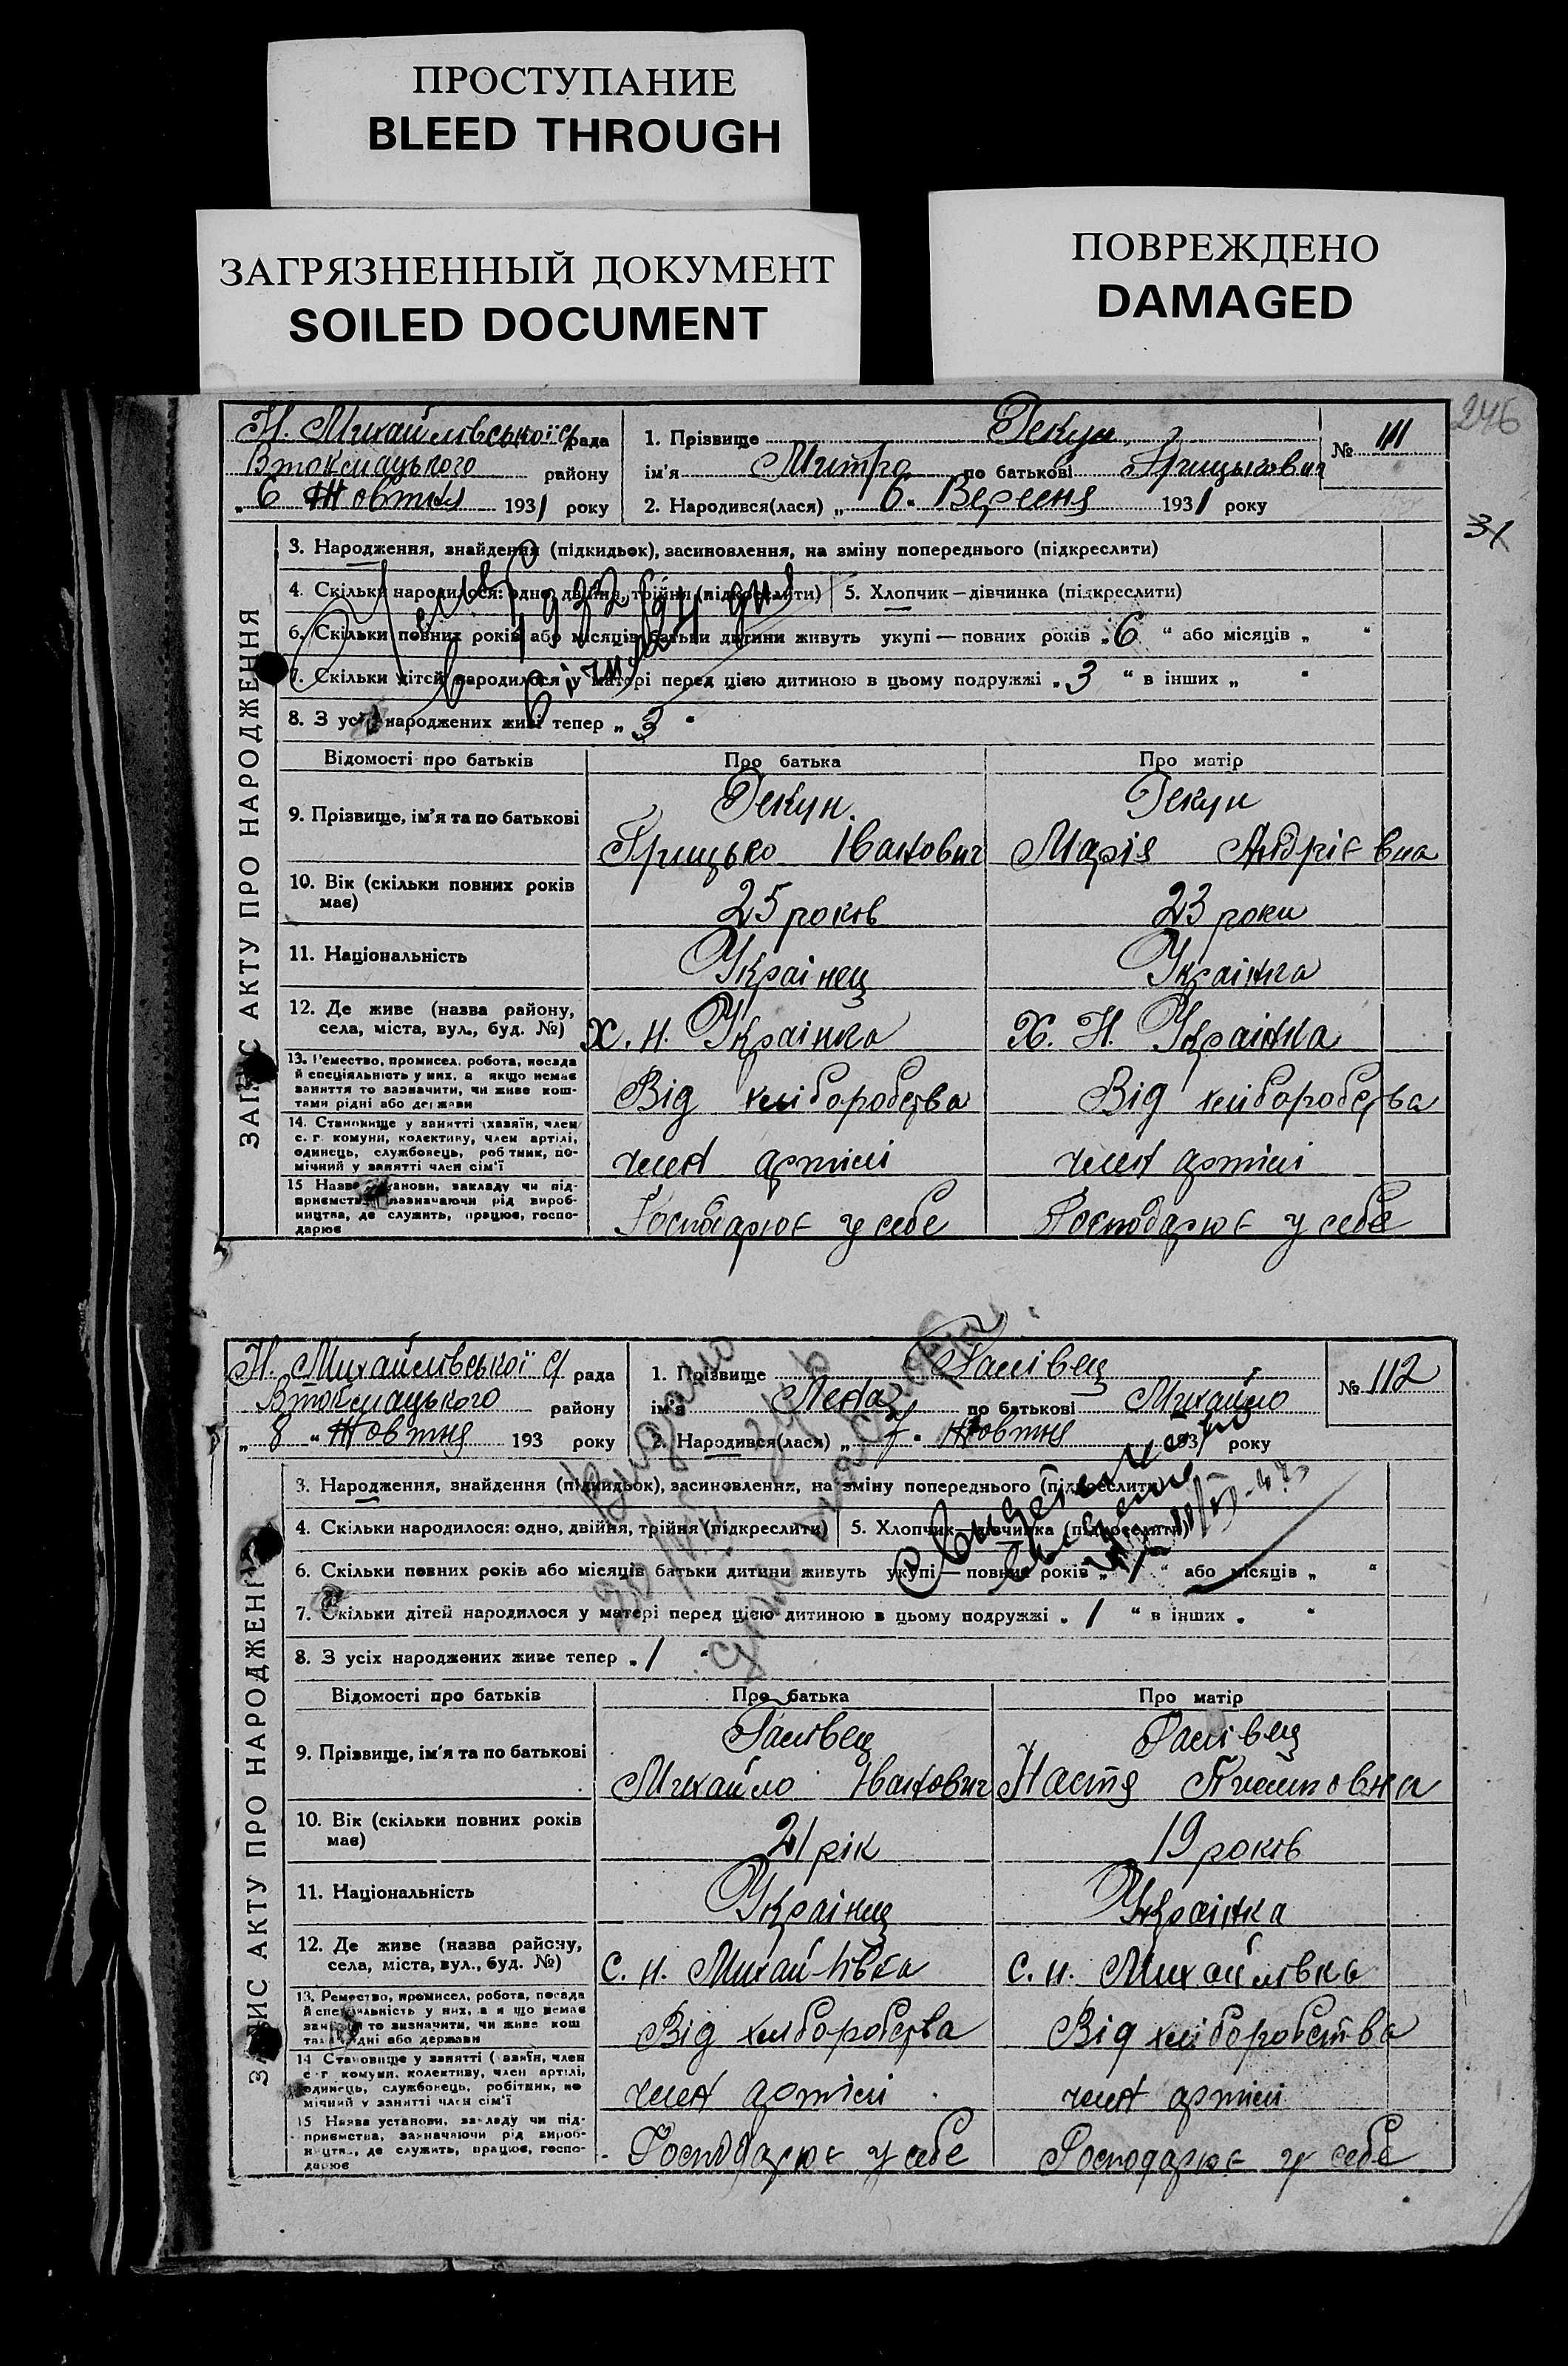 ПРОСТУПАНИЕ
BLEED THROUGH
ЗАГРЯЗНЕННЫЙ ДОКУМЕНТ
SOILED DOCUMENT
ПОВРЕЖДЕНО
DAMAGED
246
31
ЗАПИС АКТУ ПРО НАРОДЖЕННЯ
Н. Михайлівської с/рада
Втокмацького району
„ 6 Жовтня 1931 року
1. Прізвище Гекун
№ 111
ім'я Митро по батькові Грицькович
2. Народився(лася) „ 6 " Вересня 1931 року
3. Народження, знайдення (підкидьок), засиновлення, на зміну попереднього (підкреслити)
4. Скільки народилося: одно, двійня, трійня (підкреслити) 5. Хлопчик—дівчинка (підкреслити)
6. Скільки повних років або місяців батьки дитини живуть укупі — повних років „ 6 “ або місяців „ “
7. Скільки дітей народилося у матері перед цією дитиною в цьому подружжі „ 3 “ в інших „ “
8. З усіх народжених живі тепер „ 3 “
1932
Відомості про батьків Про батька Про матір
9. Прізвище, ім'я та по батькові
Гекун Гекун
Грицько Іванович Марія Андрієвна
10. Вік (скільки повних років має)
25 років 23 роки
11. Національність
Українец Українка
12. Де живе (назва району, села, міста, вул., буд. №)
Х. Н. Українка Х. Н. Українка
13. Ремество, промисел, робота, посада й спеціяльність у них, а якщо немає заняття то зазначити, чи живе коштами рідні або держави
Від хліборобства Від хліборобства
14. Становище у занятті (хазяїн, член с.-г. комуни, колективу, член артілі, одинець, службовець, робітник, помічний у занятті член сім'ї
член артілі член артілі
15 Назва установи, закладу чи підприємства, зазначаючи рід виробництва, де служить, працює, господарює
Господарює у себе Господарює у себе
ЗАПИС АКТУ ПРО НАРОДЖЕННЯ
Н. Михайлівської с/ рада
Втокмацького району
„ 8 “ Жовтня 193 року
1. Прізвище Галівец
№ 112
ім'я Лена по батькові Михайло
2. Народився(лася) „ 7 " Жовтня 193 року
3. Народження, знайдення (підкидьок), засиновлення, на зміну попереднього (підкреслити)
4. Скільки народилося: одно, двійня, трійня (підкреслити) 5. Хлопчик—дівчинка (підкреслити)
6. Скільки повних років або місяців батьки дитини живуть укупі — повних років „ 1 “ або місяців „ “
7. Скільки дітей народилося у матері перед цією дитиною в цьому подружжі „ 1 “ в інших „ “
8. З усіх народжених живе тепер „ 1 “
Видано
для паспорта
Відомості про батьків Про батька Про матір
9. Прізвище, ім'я та по батькові
Галівец Галівец
Михайло Іванович Настя
10. Вік (скільки повних років має)
21 рік 19 років
11. Національність
Українец Українка
12. Де живе (назва району, села, міста, вул., буд. №)
С. Н. Михайлівка С. Н. Михайлівка
13. Ремество, промисел, робота, посада й спеціяльність у них, а якщо немає заняття то визначити, чи живе коштами рідні або держави
Від хліборобства Від хліборобства
14 Становище у занятті (хазяїн, член с-г комуни, колективу, член артілі, одинець, службовець, робітник, помічний у занятті член сім'ї
член артілі член артілі
15 Назва установи, закладу чи підприємства, зазначаючи рід виробництва, де служить, працює, господарює
Господарює у себе Господарює у себе